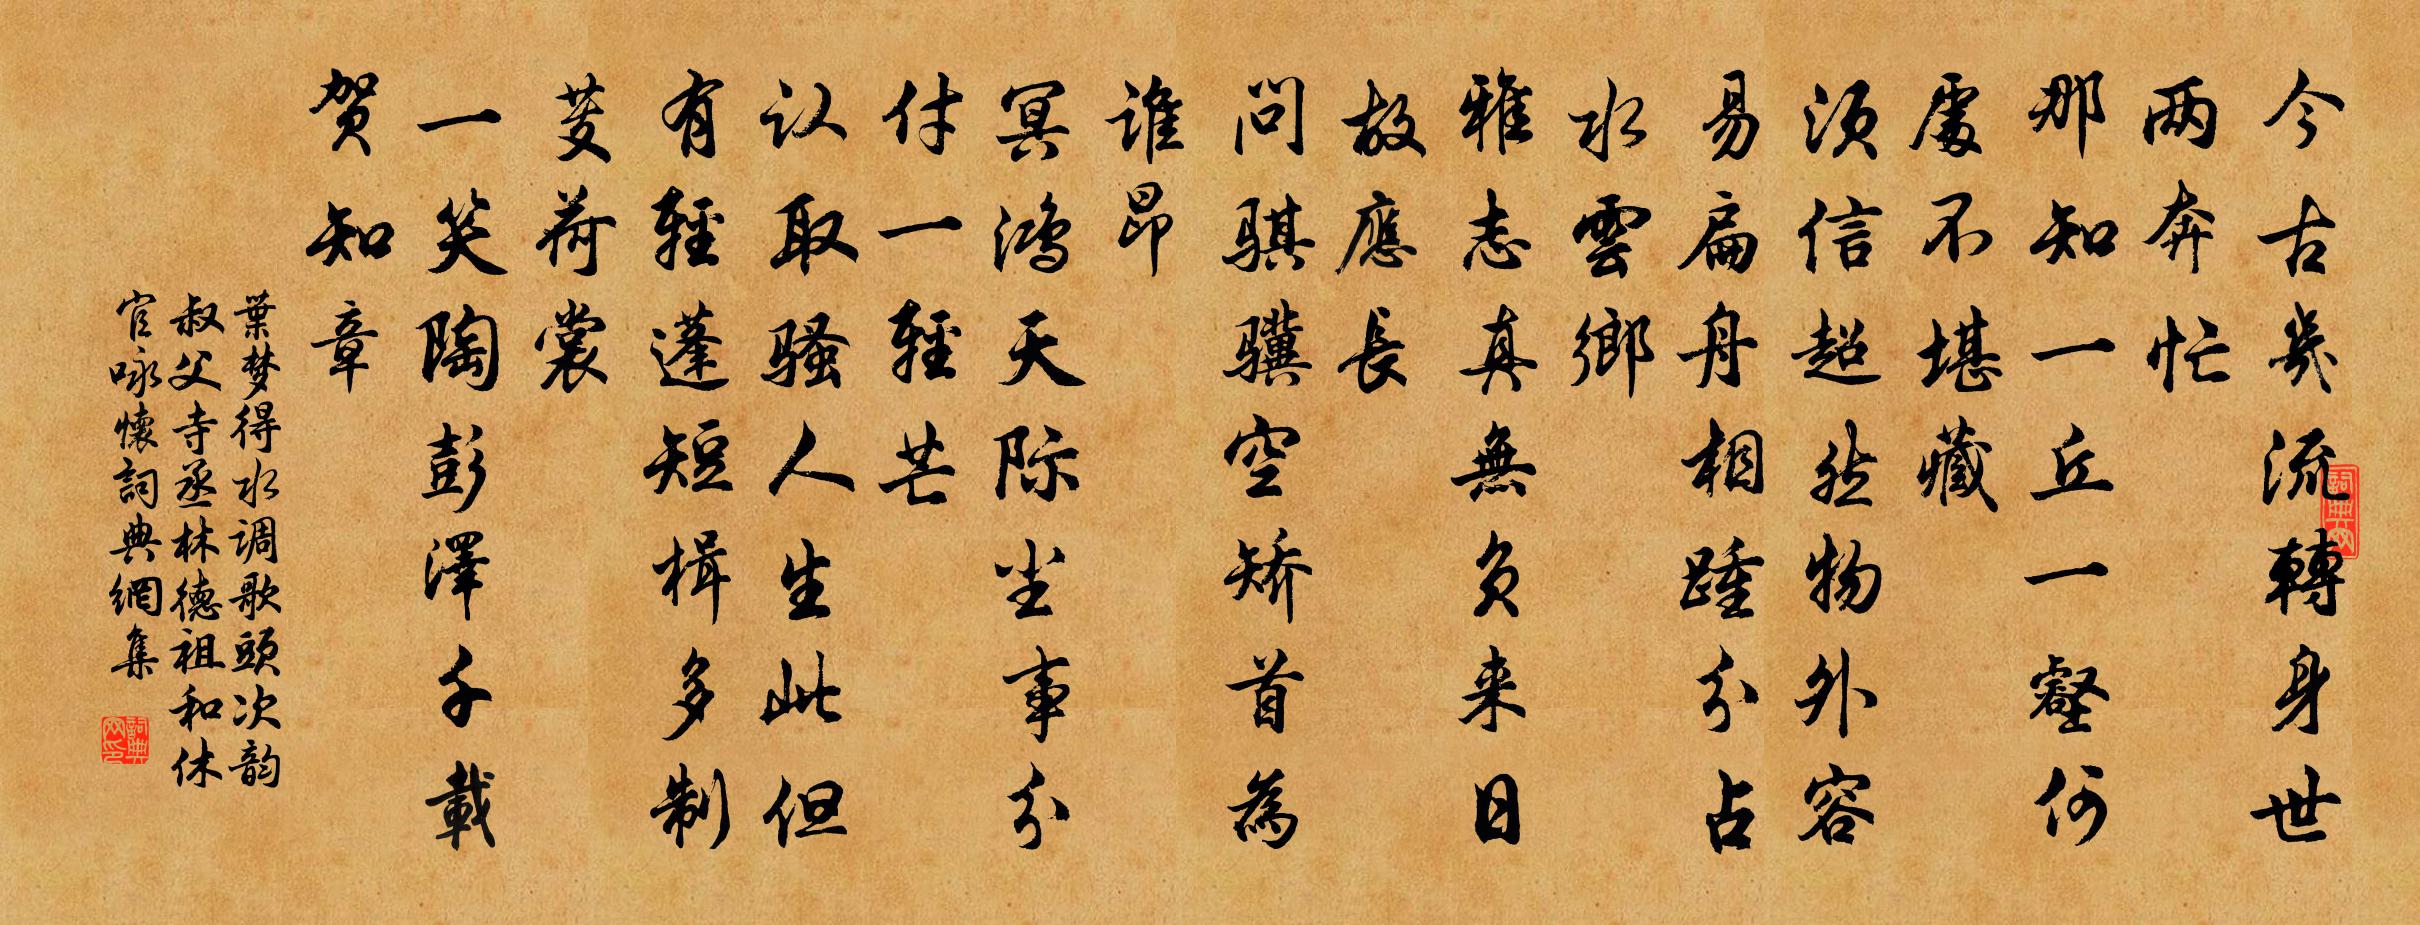 今古幾流轉身世
两奔忙
那知一丘一壑何
處不堪藏
須信超然物外容
易扁舟相踵分占
水雲鄉
雅志真無負来日
故應長
問骐骥空矫首為
谁昂
冥鸿天际尘事分
付一輕芒
认取骚人生此但
有輕蓬短楫多制
芰荷裳
一笑陶彭澤千載
贺知章
葉梦得水调歌頭次韵
叔父寺丞林德祖和休
官咏懷詞典網集
詞典网
詞典网印